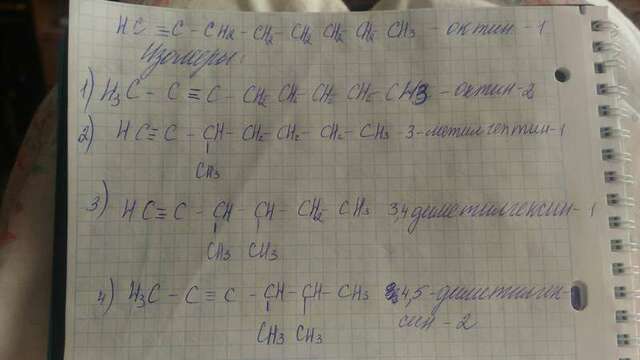 HC≡C-CH2-CH2-CH2-CH2-CH2-CH3 - октин-1
Изомеры:
1) H3C-C≡C-CH2-CH2-CH2-CH2-CH3 - октин-2
2) HC≡C-CH-CH2-CH2-CH2-CH3 - 3-метилгептин-1
CH3
3) HC≡C-CH-CH-CH2-CH3 3,4диметилгексин-1
CH3 CH3
4) H3C-C≡C-CH-CH-CH3 4,5-диметилгек-
CH3 CH3 син-2